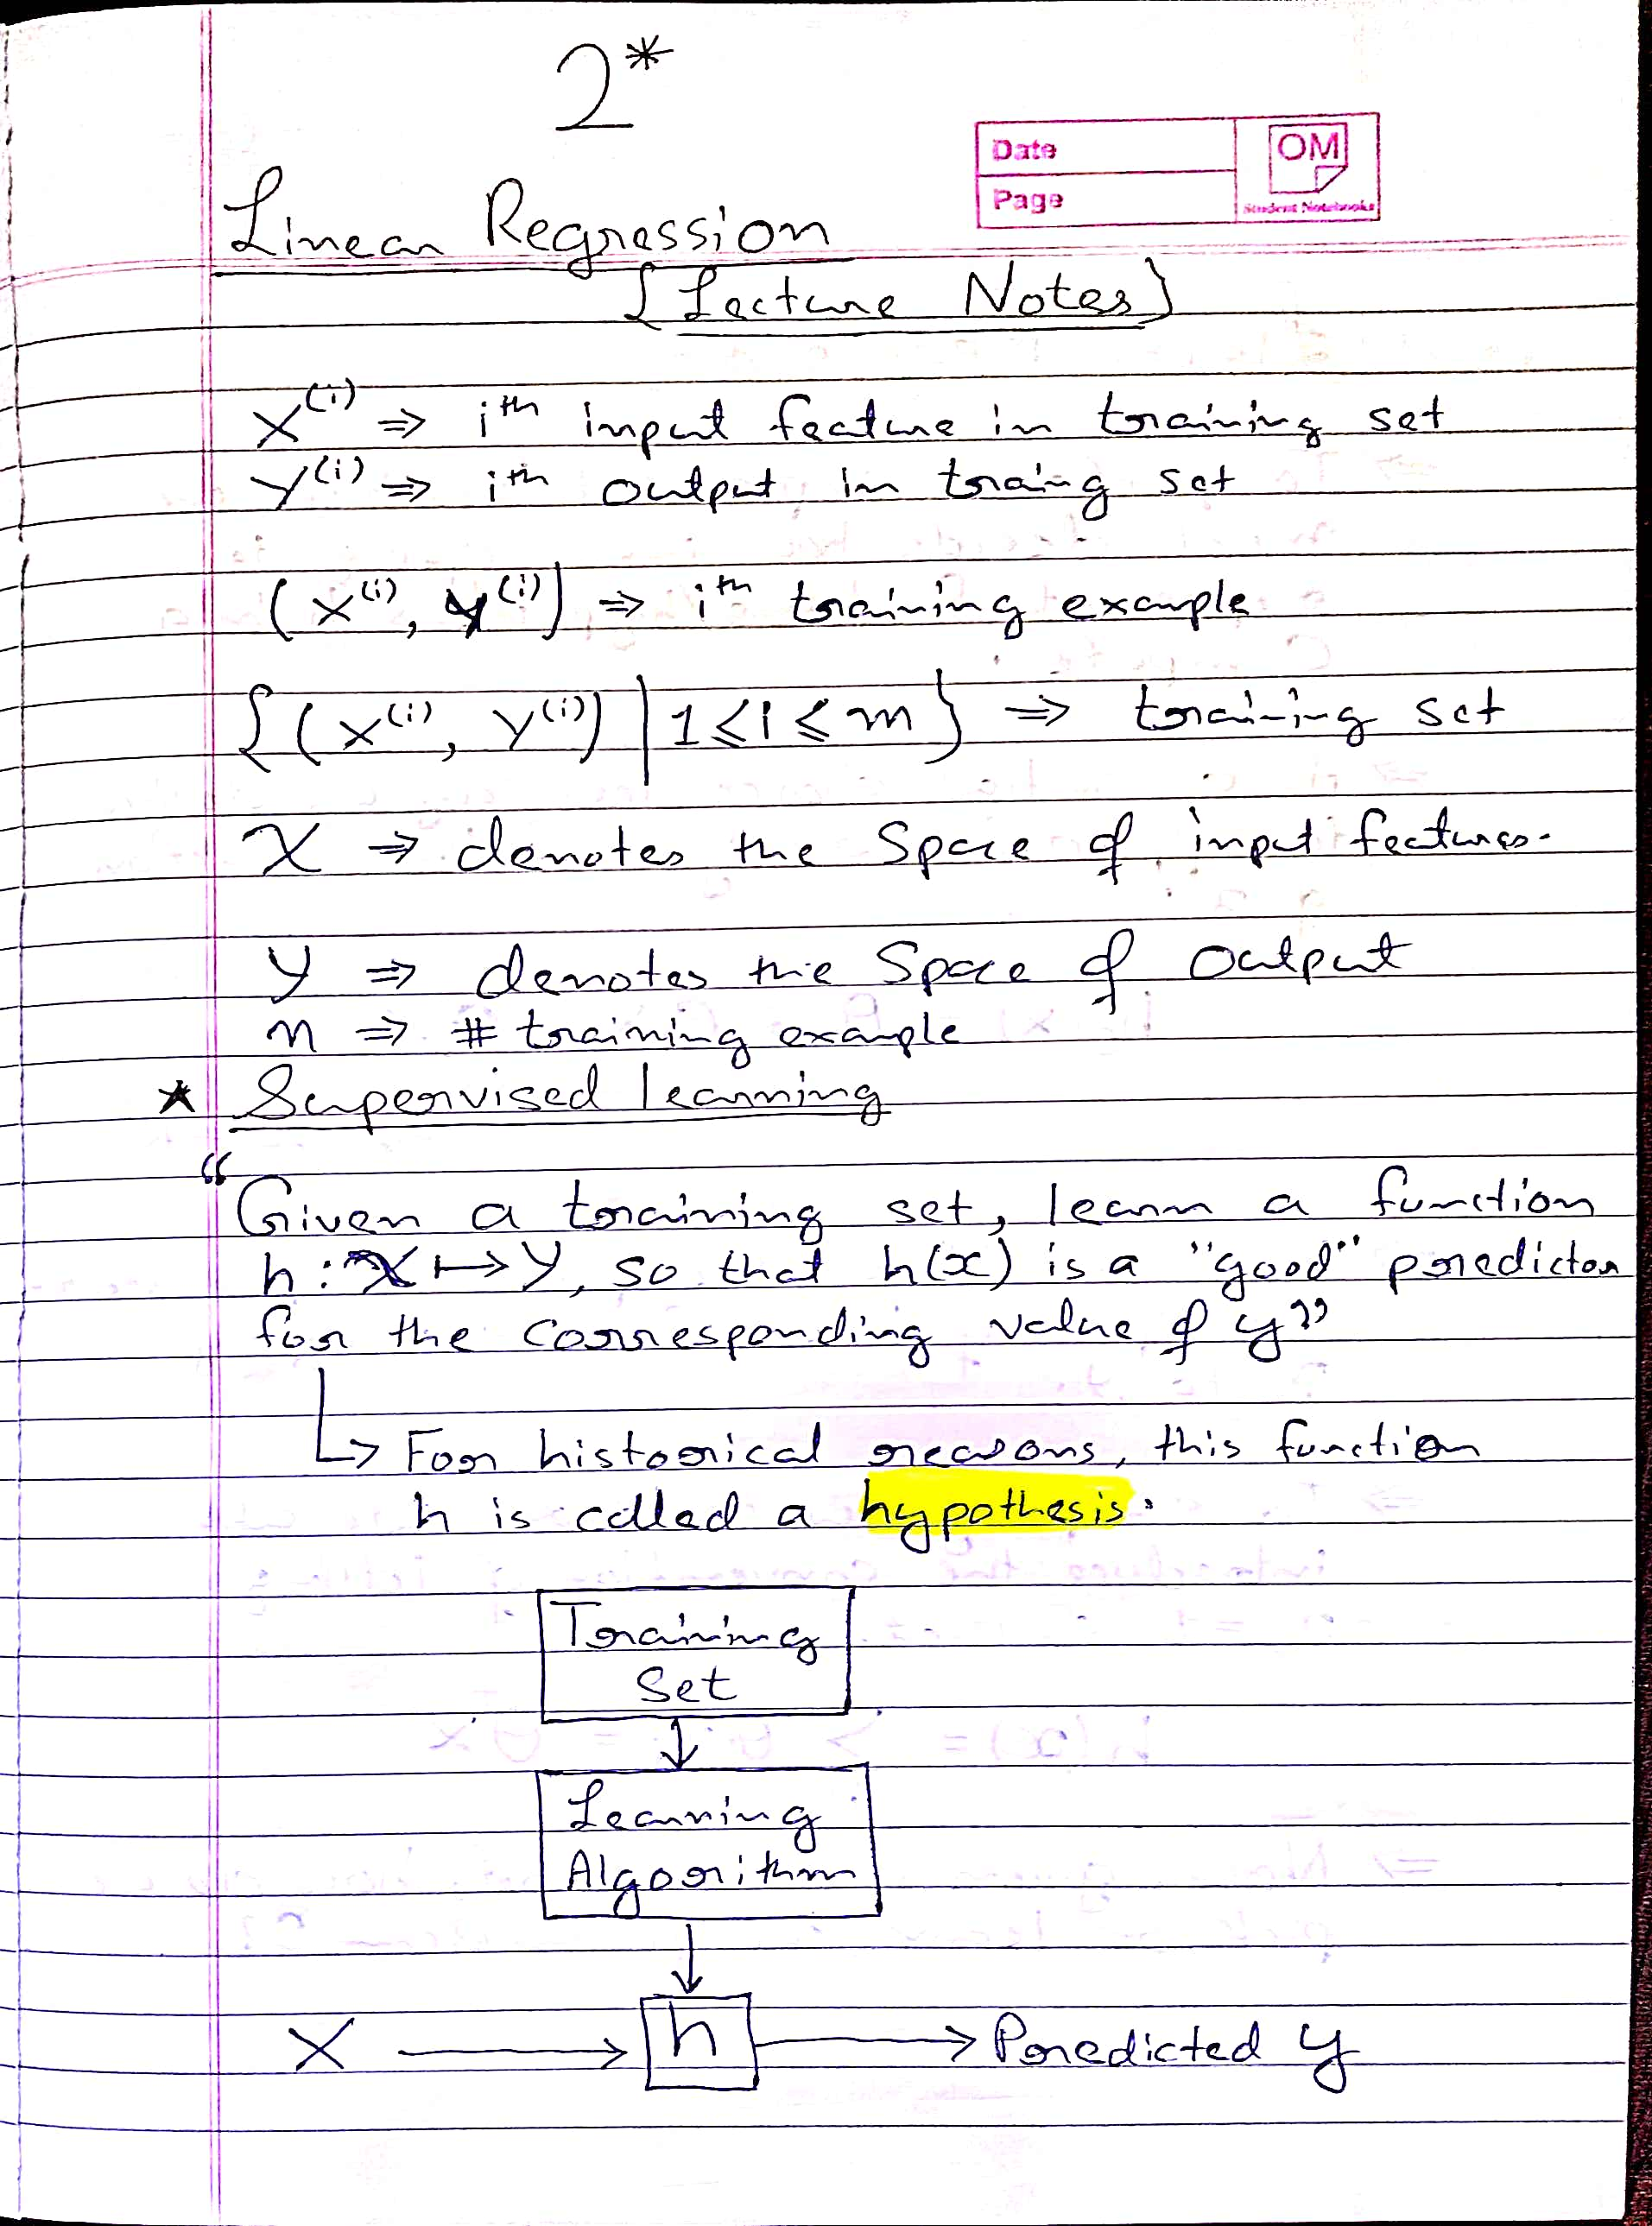 2*
Date
Page
OM
Student Notebooks
Linear Regression
{Lecture Notes}
x⁽ⁱ⁾ ⇒ iᵗʰ input feature in training set
y⁽ⁱ⁾ ⇒ iᵗʰ output in traing set
(x⁽ⁱ⁾, y⁽ⁱ⁾) ⇒ iᵗʰ training example
{(x⁽ⁱ⁾, y⁽ⁱ⁾) | 1 ≤ i ≤ m} ⇒ training set
X ⇒ denotes the Space of input features.
Y ⇒ denotes the Space of Output
n ⇒ # training example
* Supervised learning
“Given a training set, learn a function
h : X ↦ Y, so that h(x) is a "good" predictor
for the corresponding value of y”
↳ For historical reasons, this function
h is called a hypothesis.
Training
Set
↓
Learning
Algorithm
↓
X → h → Predicted y